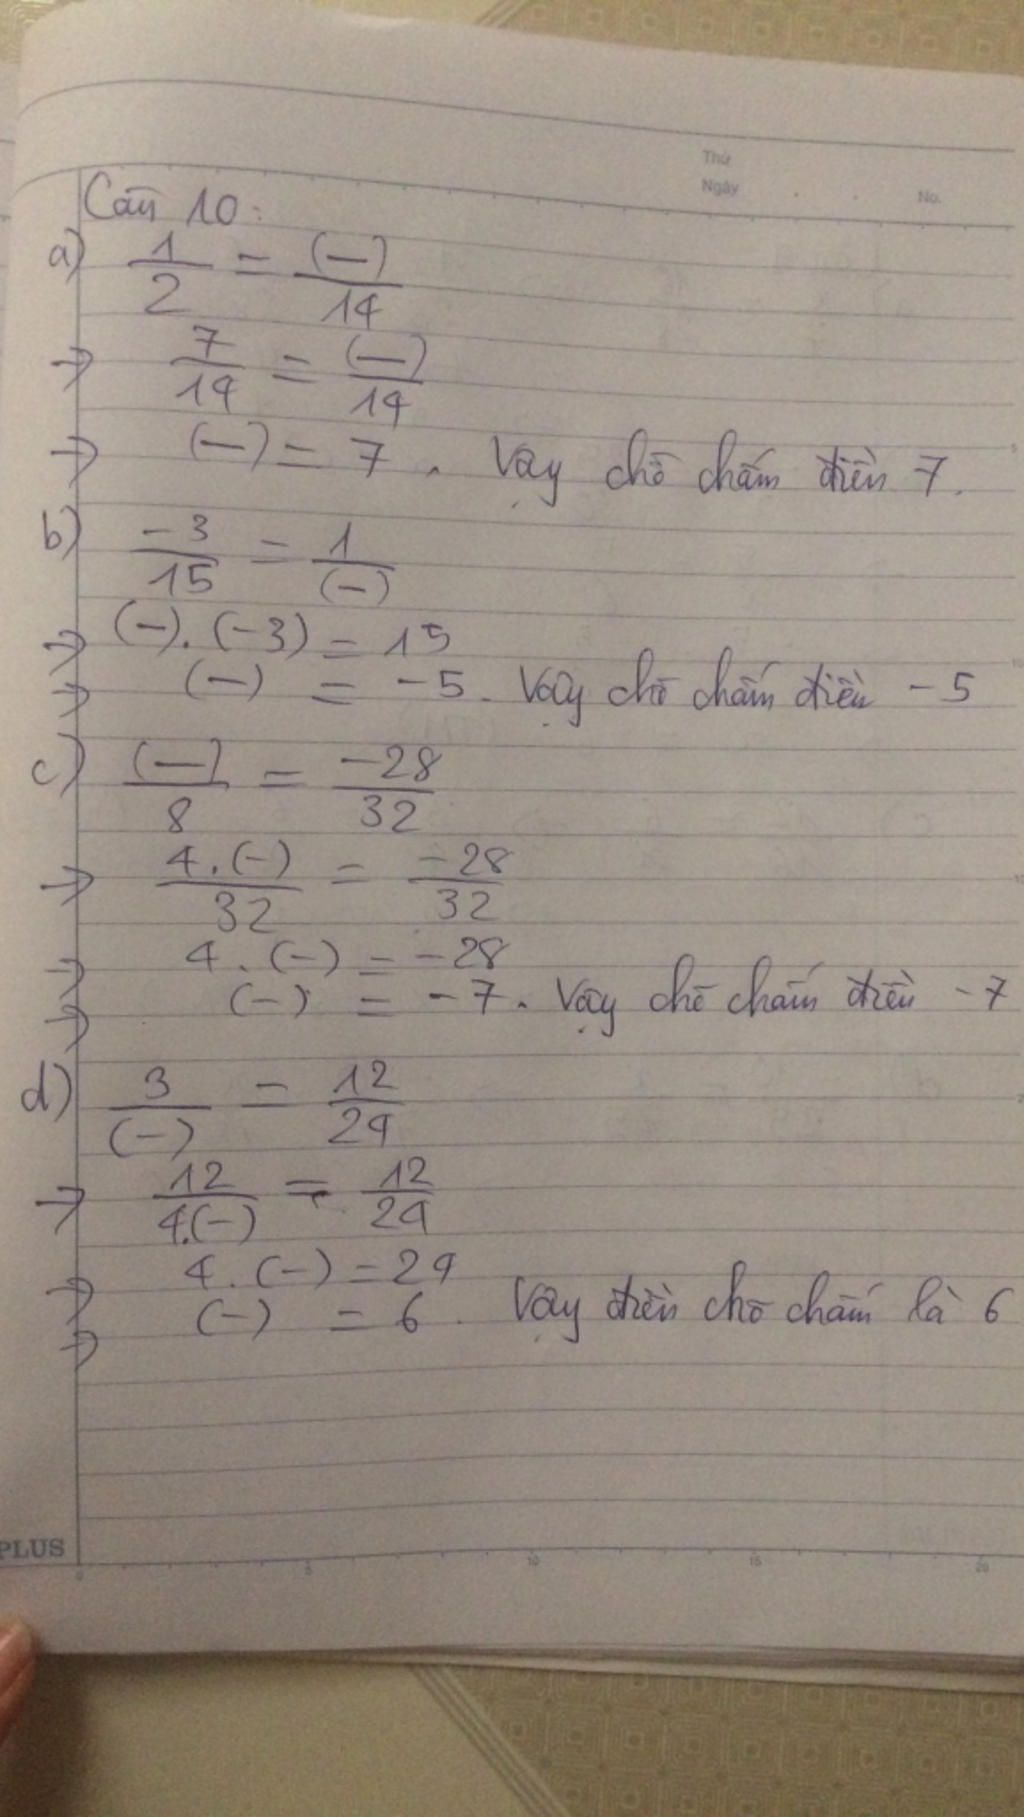 Thứ
Ngày . . No.
Câu 10:
a) 1/2 = (—)/14
→ 7/14 = (—)/14
→ (—) = 7. Vậy chỗ chấm điền 7.
b) -3/15 = 1/(-)
→ (-).(-3) = 15
→ (-) = -5. Vậy chỗ chấm điền -5
c) (—)/8 = -28/32
→ 4.(-)/32 = -28/32
→ 4.(-) = -28
→ (-) = -7. Vậy chỗ chấm điền -7
d) 3/(-) = 12/24
→ 12/4.(-) = 12/24
→ 4.(-) = 24
→ (-) = 6. Vậy điền chỗ chấm là 6
PLUS
0 5 10 15 20